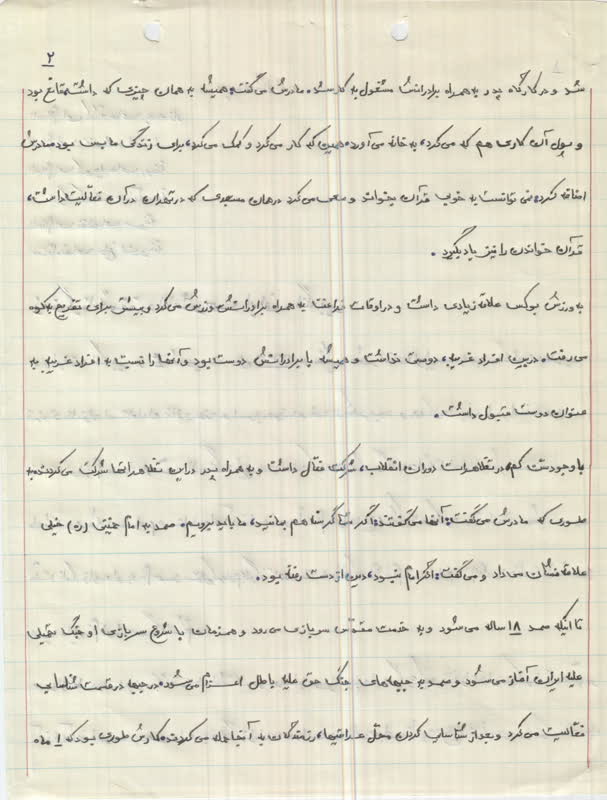 ۲
شد و در کارگاه پدر به همراه برادرانش مشغول به کار شد. مادرش می گفت: همیشه به همان چیزی که داشت قانع بود
و پول آن کاری هم که می کرد، به خانه می آورد. همین که کار می کرد و کمک می کرد، برای زندگی ما بس بود. مادرش
اضافه کرد: نمی توانست به خوبی قرآن بخواند و سعی می کرد در همان مسجدی که در تهران در آن فعّالیت داشت،
قرآن خواندن را نیز یاد بگیرد.
به ورزش بوکس علاقه زیادی داشت و در اوقات فراغت به همراه برادرانش ورزش می کرد و بیشتر برای تفریح به کوه
می رفت. در بین افراد غریبه، دوست نداشت و همیشه با برادرانش دوست بود و آنها را نسبت به افراد غریبه به
عنوان دوست قبول داشت.
با وجود سن کم، در تظاهرات دوران انقلاب، شرکت فعّال داشت و به همراه پدر در این تظاهراتها شرکت می کردند. به
طوری که مادرش می گفت: آنها می گفتند: اگر شما هم بمانید، ما باید برویم. صمد به امام خمینی (ره) خیلی
علاقه نشان می داد و می گفت: اگر امام نبود، دین از دست رفته بود.
تا اینکه صمد ۱۸ ساله می شود و به خدمت مقدّس سربازی می رود و همزمان با شروع سربازی او جنگ تحمیلی
علیه ایران آغاز می شود و صمد به جبهه های جنگ حق علیه باطل اعزام می شود. در جبهه در قسمت شناسایی
فعّالیت می کرد و بعد از شناسایی کردن محلّ عراقیها، رزمندگان به آنها حمله می کردند. کارش طوری بود که ۱ ماه